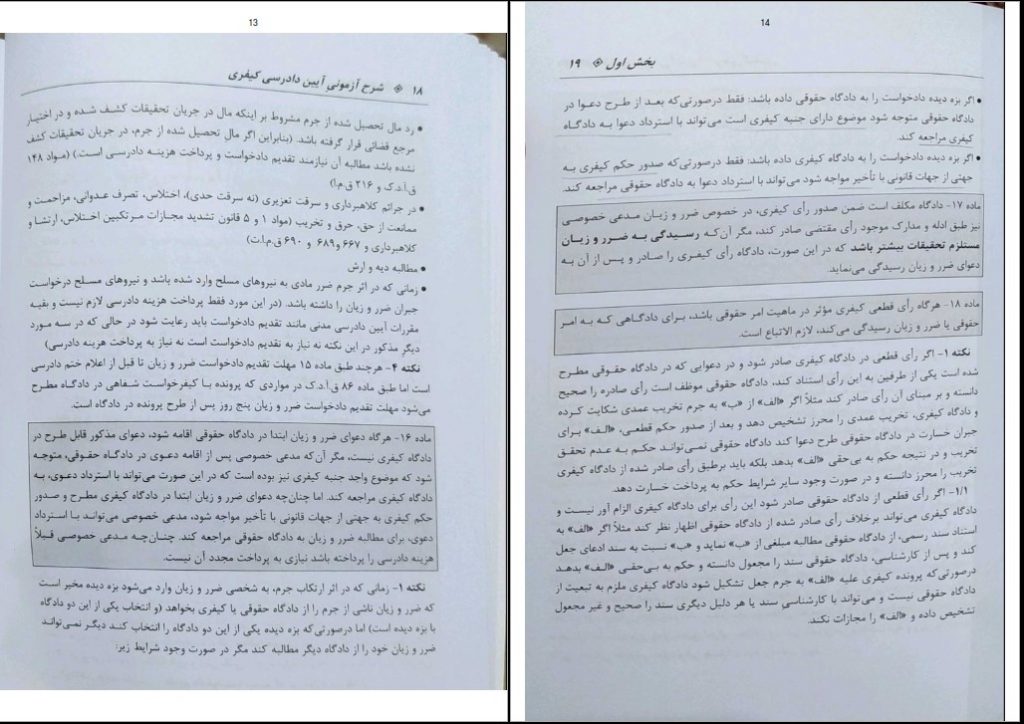 13
۱۸ ◈ شرح آزمونی آیین دادرسی کیفری
• رد مال تحصیل شده از جرم مشروط بر اینکه مال در جریان تحقیقات کشف شده و در اختیار
مرجع قضائی قرار گرفته باشد. (بنابراین اگر مال تحصیل شده از جرم، در جریان تحقیقات کشف
نشده باشد مطالبه آن نیازمند تقدیم دادخواست و پرداخت هزینه دادرسی است.) (مواد ۱۴۸
ق.آ.د.ک و ۲۱۶ ق.م.ا)
• در جرائم کلاهبرداری و سرقت تعزیری (نه سرقت حدی)، اختلاس، تصرف عدوانی، مزاحمت و
ممانعت از حق، حرق و تخریب (مواد ۱ و ۵ قانون تشدید مجازات مرتکبین اختلاس، ارتشا و
کلاهبرداری و ۶۶۷ و۶۸۹ و ۶۹۰ ق.م.ا.ت)
• مطالبه دیه و ارش
• زمانی که در اثر جرم ضرر مادی به نیروهای مسلح وارد شده باشد و نیروهای مسلح درخواست
جبران ضرر و زیان را داشته باشد. (در این مورد فقط پرداخت هزینه دادرسی لازم نیست و بقیه
مقررات آیین دادرسی مدنی مانند تقدیم دادخواست باید رعایت شود در حالی که در سه مورد
دیگر مذکور در این نکته نه نیاز به تقدیم دادخواست است نه نیاز به پرداخت هزینه دادرسی)
نکته ۴- هرچند طبق ماده ۱۵ مهلت تقدیم دادخواست ضرر و زیان تا قبل از اعلام ختم دادرسی
است اما طبق ماده ۸۶ ق.آ.د.ک در مواردی که پرونده با کیفرخواست شفاهی در دادگاه مطرح
می‌شود مهلت تقدیم دادخواست ضرر و زیان پنج روز پس از طرح پرونده در دادگاه است.
ماده ۱۶- هرگاه دعوای ضرر و زیان ابتدا در دادگاه حقوقی اقامه شود، دعوای مذکور قابل طرح در
دادگاه کیفری نیست، مگر آن‌که مدعی خصوصی پس از اقامه دعوی در دادگاه حقوقی، متوجه
شود که موضوع واجد جنبه کیفری نیز بوده است که در این صورت می‌تواند با استرداد دعوی، به
دادگاه کیفری مراجعه کند. اما چنان‌چه دعوای ضرر و زیان ابتدا در دادگاه کیفری مطرح و صدور
حکم کیفری به جهتی از جهات قانونی با تأخیر مواجه شود، مدعی خصوصی می‌تواند با استرداد
دعوی، برای مطالبه ضرر و زیان به دادگاه حقوقی مراجعه کند. چنان‌چه مدعی خصوصی قبلاً
هزینه دادرسی را پرداخته باشد نیازی به پرداخت مجدد آن نیست.
نکته ۱- زمانی که در اثر ارتکاب جرم، به شخصی ضرر و زیان وارد می‌شود بزه دیده مخیر است
که ضرر و زیان ناشی از جرم را از دادگاه حقوقی یا کیفری بخواهد (و انتخاب یکی از این دو دادگاه
با بزه دیده است) اما درصورتی‌که بزه دیده یکی از این دو دادگاه را انتخاب کند دیگر نمی‌تواند
ضرر و زیان خود را از دادگاه دیگر مطالبه کند مگر در صورت وجود شرایط زیر:
14
بخش اول ◈ ۱۹
• اگر بزه دیده دادخواست را به دادگاه حقوقی داده باشد: فقط درصورتی‌که بعد از طرح دعوا در
دادگاه حقوقی متوجه شود موضوع دارای جنبه کیفری است می‌تواند با استرداد دعوا به دادگاه
کیفری مراجعه کند.
• اگر بزه دیده دادخواست را به دادگاه کیفری داده باشد: فقط درصورتی‌که صدور حکم کیفری به
جهتی از جهات قانونی با تأخیر مواجه شود می‌تواند با استرداد دعوا به دادگاه حقوقی مراجعه کند.
ماده ۱۷- دادگاه مکلف است ضمن صدور رأی کیفری، در خصوص ضرر و زیان مدعی خصوصی
نیز طبق ادله و مدارک موجود رأی مقتضی صادر کند، مگر آن‌که رسیدگی به ضرر و زیان
مستلزم تحقیقات بیشتر باشد که در این صورت، دادگاه رأی کیفری را صادر و پس از آن به
دعوای ضرر و زیان رسیدگی می‌نماید.
ماده ۱۸- هرگاه رأی قطعی کیفری مؤثر در ماهیت امر حقوقی باشد، برای دادگاهی که به امر
حقوقی یا ضرر و زیان رسیدگی می‌کند، لازم الاتباع است.
نکته ۱- اگر رأی قطعی در دادگاه کیفری صادر شود و در دعوایی که در دادگاه حقوقی مطرح
شده است یکی از طرفین به این رأی استناد کند، دادگاه حقوقی موظف است رأی صادره را صحیح
دانسته و بر مبنای آن رأی صادر کند مثلاً اگر «الف» از «ب» به جرم تخریب عمدی شکایت کرده
و دادگاه کیفری، تخریب عمدی را محرز تشخیص دهد و بعد از صدور حکم قطعی، «الف» برای
جبران خسارت در دادگاه حقوقی طرح دعوا کند دادگاه حقوقی نمی‌تواند حکم به عدم تحقق
تخریب و در نتیجه حکم به بی‌حقی «الف» بدهد بلکه باید برطبق رأی صادر شده از دادگاه کیفری
تخریب را محرز دانسته و در صورت وجود سایر شرایط حکم به پرداخت خسارت دهد.
۱/۱- اگر رأی قطعی از دادگاه حقوقی صادر شود این رأی برای دادگاه کیفری الزام آور نیست و
دادگاه کیفری می‌تواند برخلاف رأی صادر شده از دادگاه حقوقی اظهار نظر کند مثلاً اگر «الف» به
استناد سند رسمی، از دادگاه حقوقی مطالبه مبلغی از «ب» نماید و «ب» نسبت به سند ادعای جعل
کند و پس از کارشناسی، دادگاه حقوقی سند را مجعول دانسته و حکم به بی‌حقی «الف» بدهد
درصورتی‌که پرونده کیفری علیه «الف» به جرم جعل تشکیل شود دادگاه کیفری ملزم به تبعیت از
دادگاه حقوقی نیست و می‌تواند با کارشناسی سند یا هر دلیل دیگری سند را صحیح و غیر مجعول
تشخیص داده و «الف» را مجازات نکند.